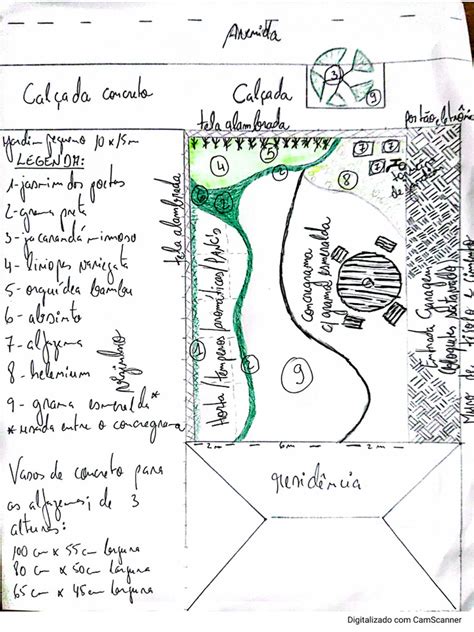 Avenida
Calçada concreto
Calçada
3
9
tela alambrada
portão eletrônico
Jardim pequeno 10 x 15m
LEGENDA:
1-jasmim dos poetas
2-grama preta
3-jacarandá mimoso
4-liriopes variegata
5-orquídea bambu
6-absinto
7-alfazema
8-helenium
9-grama esmeralda*
*usada entre o concregrama
Vasos de concreto para
as alfazemas; de 3
alturas:
100 cm x 55 cm largura
80 cm x 50 cm largura
65 cm x 45 cm largura
tela alambrada
4
5
7
7
8
6
2
Horta/temperos aromáticos/PANCS
Concregrama
c/ grama esmeralda
Entrada Garagem
bloquetes
Muro de tijolo e cimento
9
2m
6m
2m
residência
Digitalizado com CamScanner